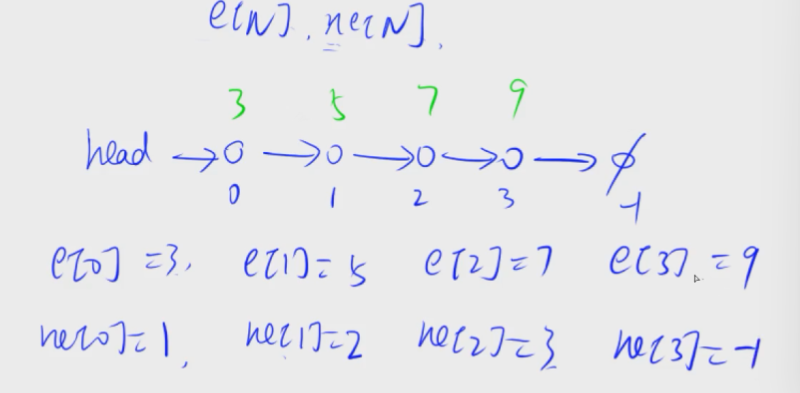 e[N], ne[N].
3 5 7 9
head → o → o → o → o → ∅
0 1 2 3 -1
e[0] = 3, e[1] = 5 e[2] = 7 e[3] = 9
ne[0] = 1, ne[1] = 2 ne[2] = 3 ne[3] = -1